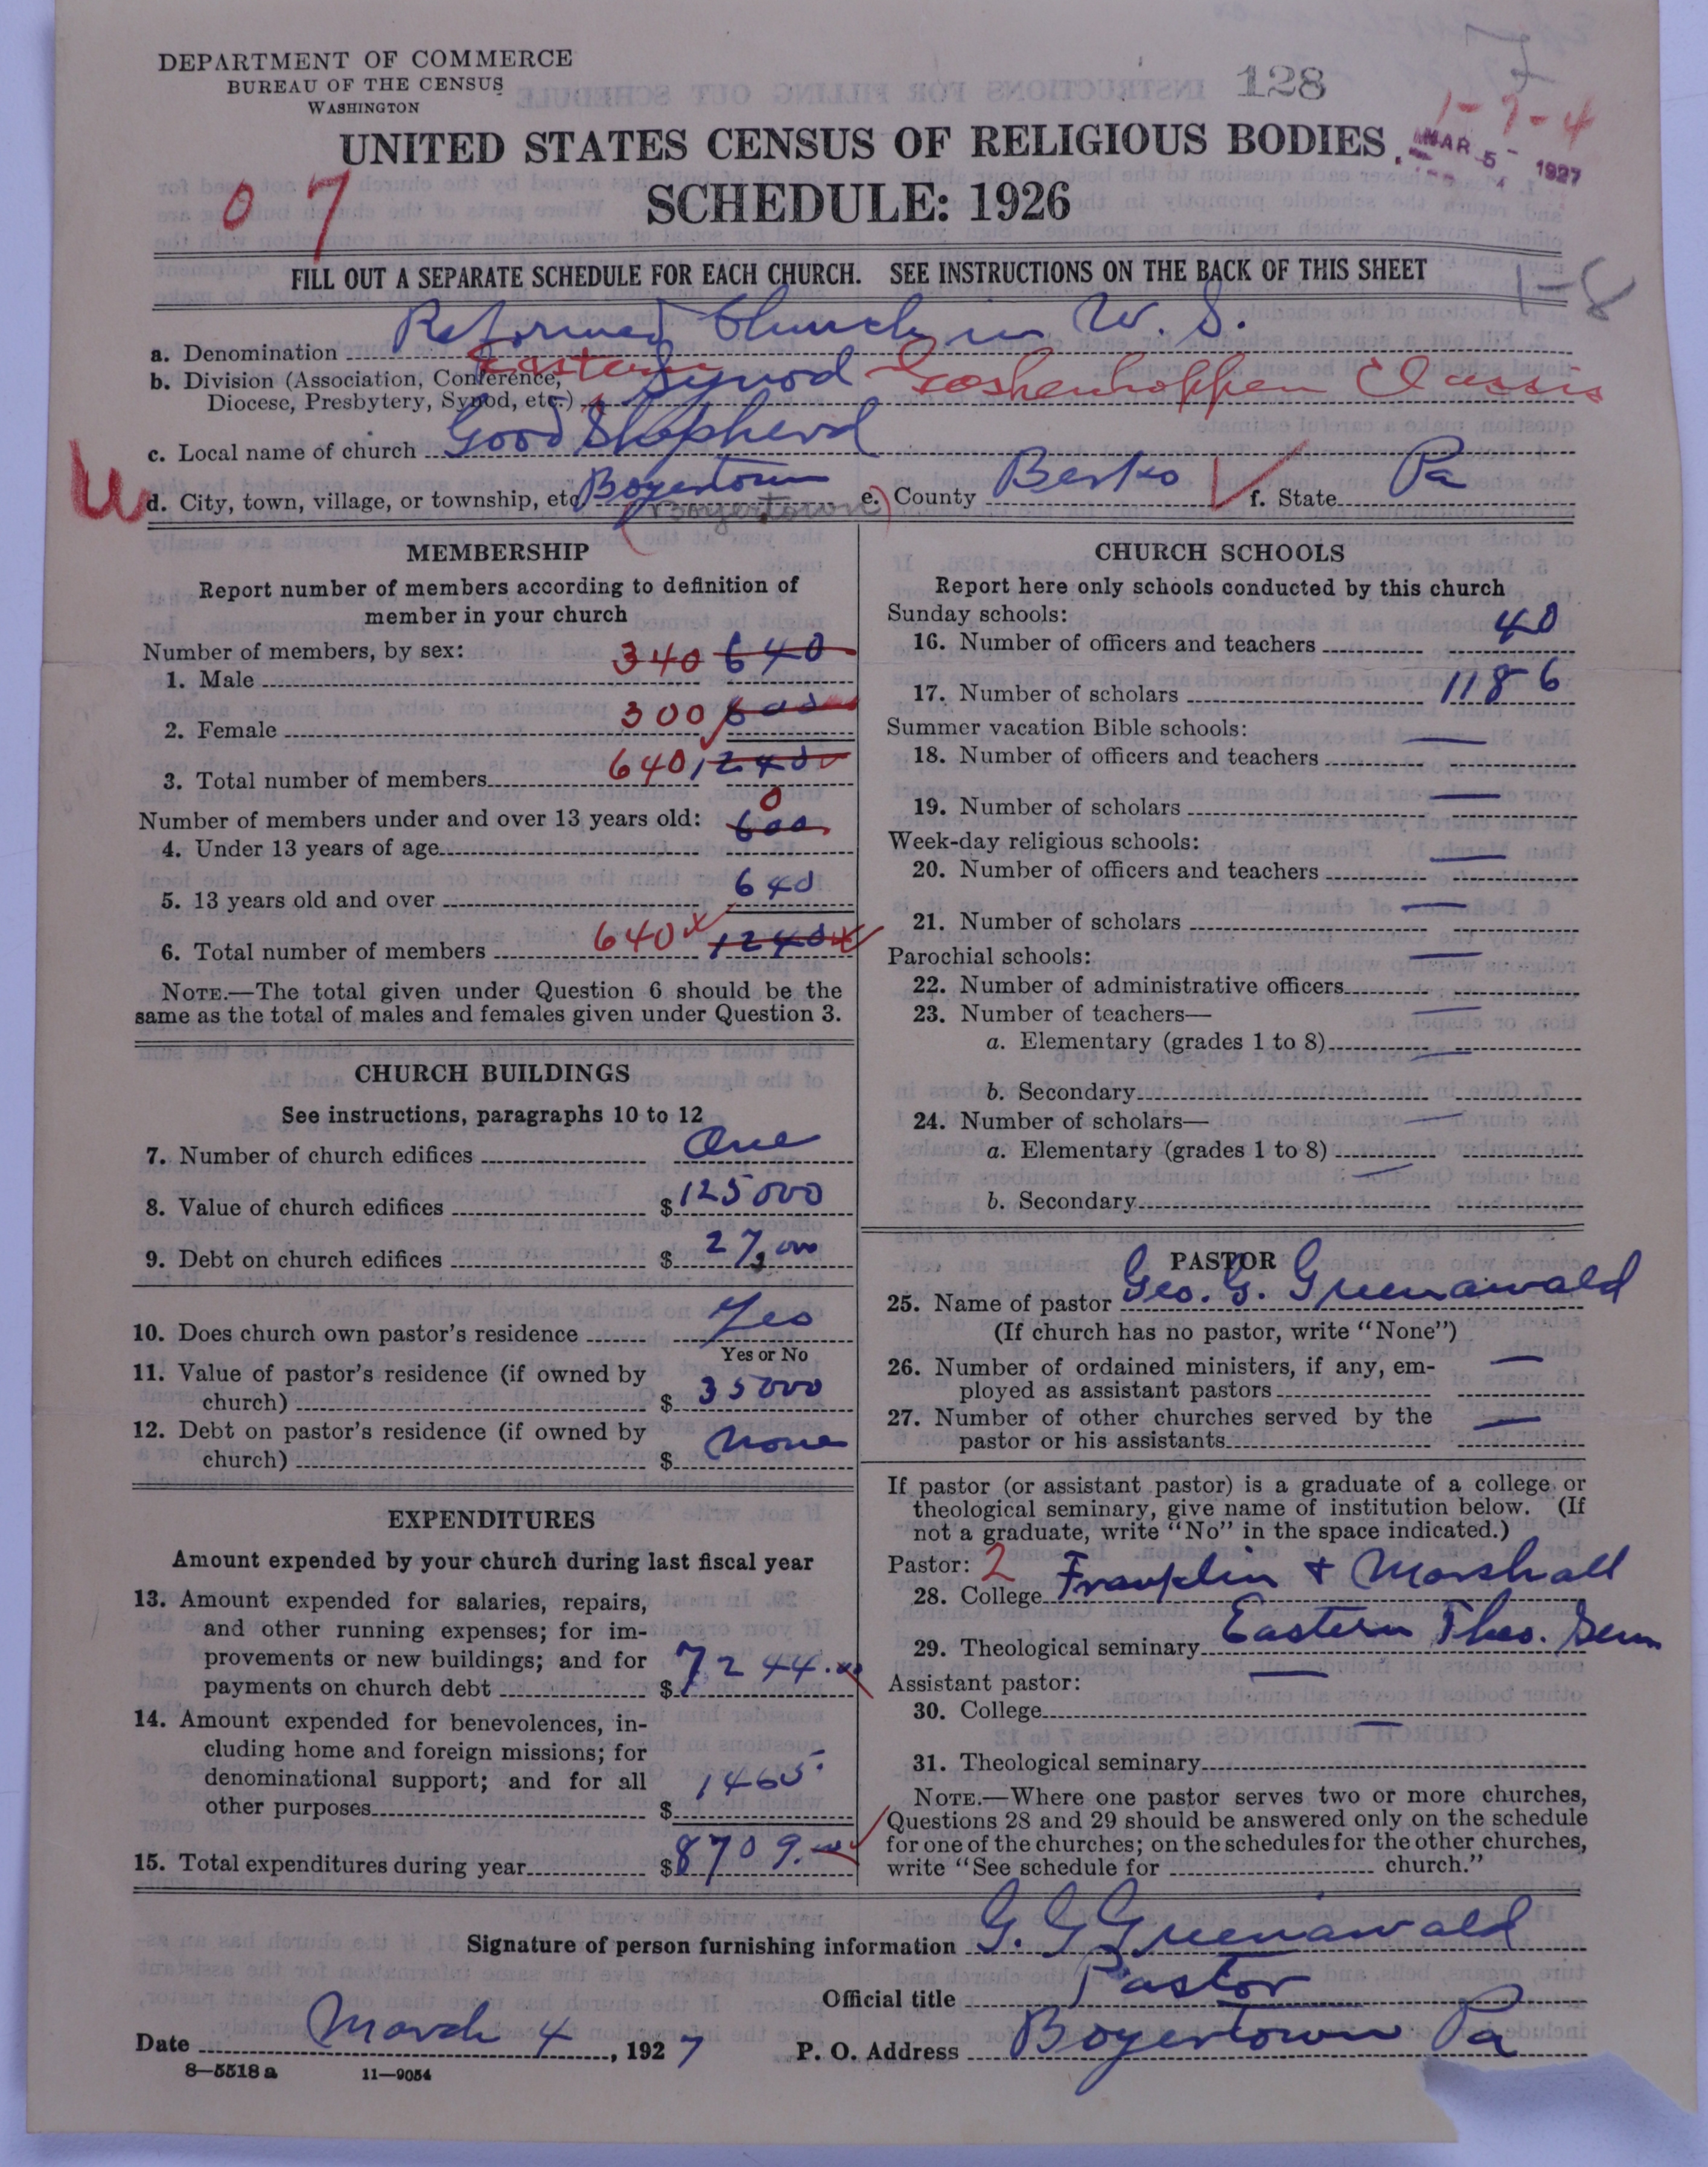 DEPARTMENT OF COMMERCE
BUREAU OF THE CENSUS
WASHINGTON
128
1-7-4
UNITED STATES CENSUS OF RELIGIOUS BODIES
MAR 5 - 1927
07
SCHEDULE: 1926
FILL OUT A SEPARATE SCHEDULE FOR EACH CHURCH. SEE INSTRUCTIONS ON THE BACK OF THIS SHEET
1-8
a. Denomination Reformed Church in U. S.
b. Division (Association, Conference, Diocese, Presbytery, Synod, etc.) Eastern Synod Goshenhoppen Classis
c. Local name of church Good Shepherd
U
d. City, town, village, or township, etc. Boyertown e. County Berks f. State Pa
(Boyertown)
MEMBERSHIP
Report number of members according to definition of
member in your church
Number of members, by sex:
1. Male 340 640
2. Female 300 600
3. Total number of members 640 1240
Number of members under and over 13 years old:
4. Under 13 years of age 0 600
5. 13 years old and over 640
6. Total number of members 640 1240
NOTE.—The total given under Question 6 should be the
same as the total of males and females given under Question 3.
CHURCH BUILDINGS
See instructions, paragraphs 10 to 12
7. Number of church edifices One
8. Value of church edifices $125000
9. Debt on church edifices $
10. Does church own pastor's residence Yes
Yes or No
11. Value of pastor's residence (if owned by
church) $ 35000
12. Debt on pastor's residence (if owned by
church) $ None
EXPENDITURES
Amount expended by your church during last fiscal year
13. Amount expended for salaries, repairs,
and other running expenses; for im-
provements or new buildings; and for
payments on church debt $ 7244.00
14. Amount expended for benevolences, in-
cluding home and foreign missions; for
denominational support; and for all
other purposes $ 1465.
15. Total expenditures during year $8709.
CHURCH SCHOOLS
Report here only schools conducted by this church
Sunday schools:
16. Number of officers and teachers 40
17. Number of scholars 1186
Summer vacation Bible schools:
18. Number of officers and teachers —
19. Number of scholars —
Week-day religious schools:
20. Number of officers and teachers —
21. Number of scholars —
Parochial schools:
22. Number of administrative officers —
23. Number of teachers—
a. Elementary (grades 1 to 8) —
b. Secondary —
24. Number of scholars—
a. Elementary (grades 1 to 8) —
b. Secondary —
PASTOR
25. Name of pastor Geo. G. Greenawald
(If church has no pastor, write "None")
26. Number of ordained ministers, if any, em-
ployed as assistant pastors —
27. Number of other churches served by the
pastor or his assistants —
If pastor (or assistant pastor) is a graduate of a college or
theological seminary, give name of institution below. (If
not a graduate, write "No" in the space indicated.)
Pastor: 2
28. College Franklin + Marshall
29. Theological seminary Eastern Theo. Sem
Assistant pastor:
30. College —
31. Theological seminary —
NOTE.—Where one pastor serves two or more churches,
Questions 28 and 29 should be answered only on the schedule
for one of the churches; on the schedules for the other churches,
write "See schedule for church."
Signature of person furnishing information G. G. Greenawald
Official title Pastor
Date March 4, 1927 P. O. Address Boyertown Pa
8—5518 a 11—9054